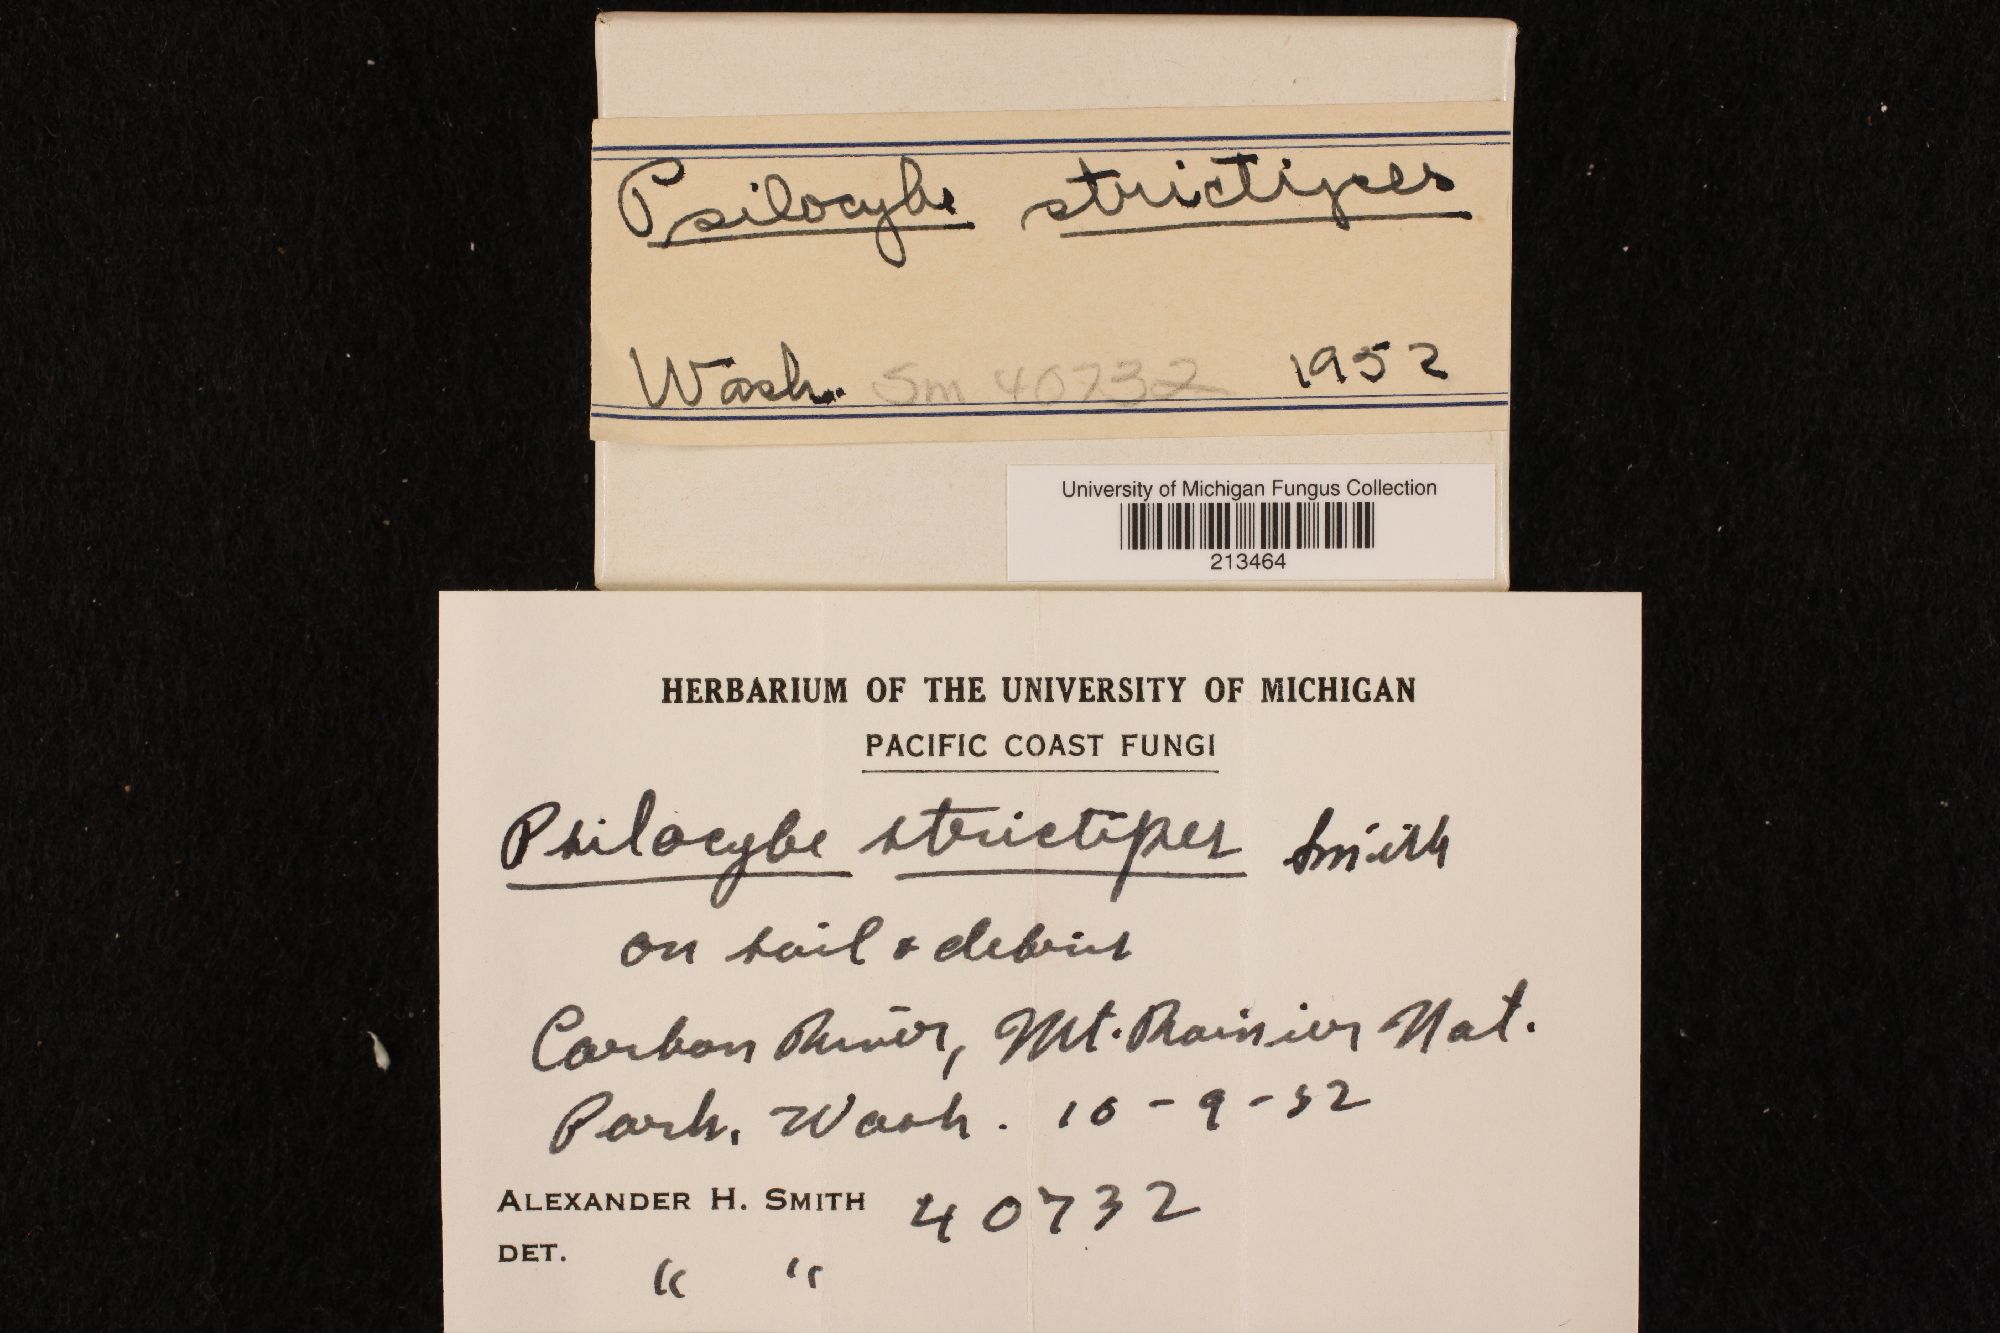 Psilocybe strictipes
Wash. Sm 40732 1952
University of Michigan Fungus Collection
213464
HERBARIUM OF THE UNIVERSITY OF MICHIGAN
PACIFIC COAST FUNGI
Psilocybe strictipes Smith
on soil & debris
Carbon River, Mt. Rainier Nat.
Park, Wash. 10-9-52
ALEXANDER H. SMITH 40732
DET. " "